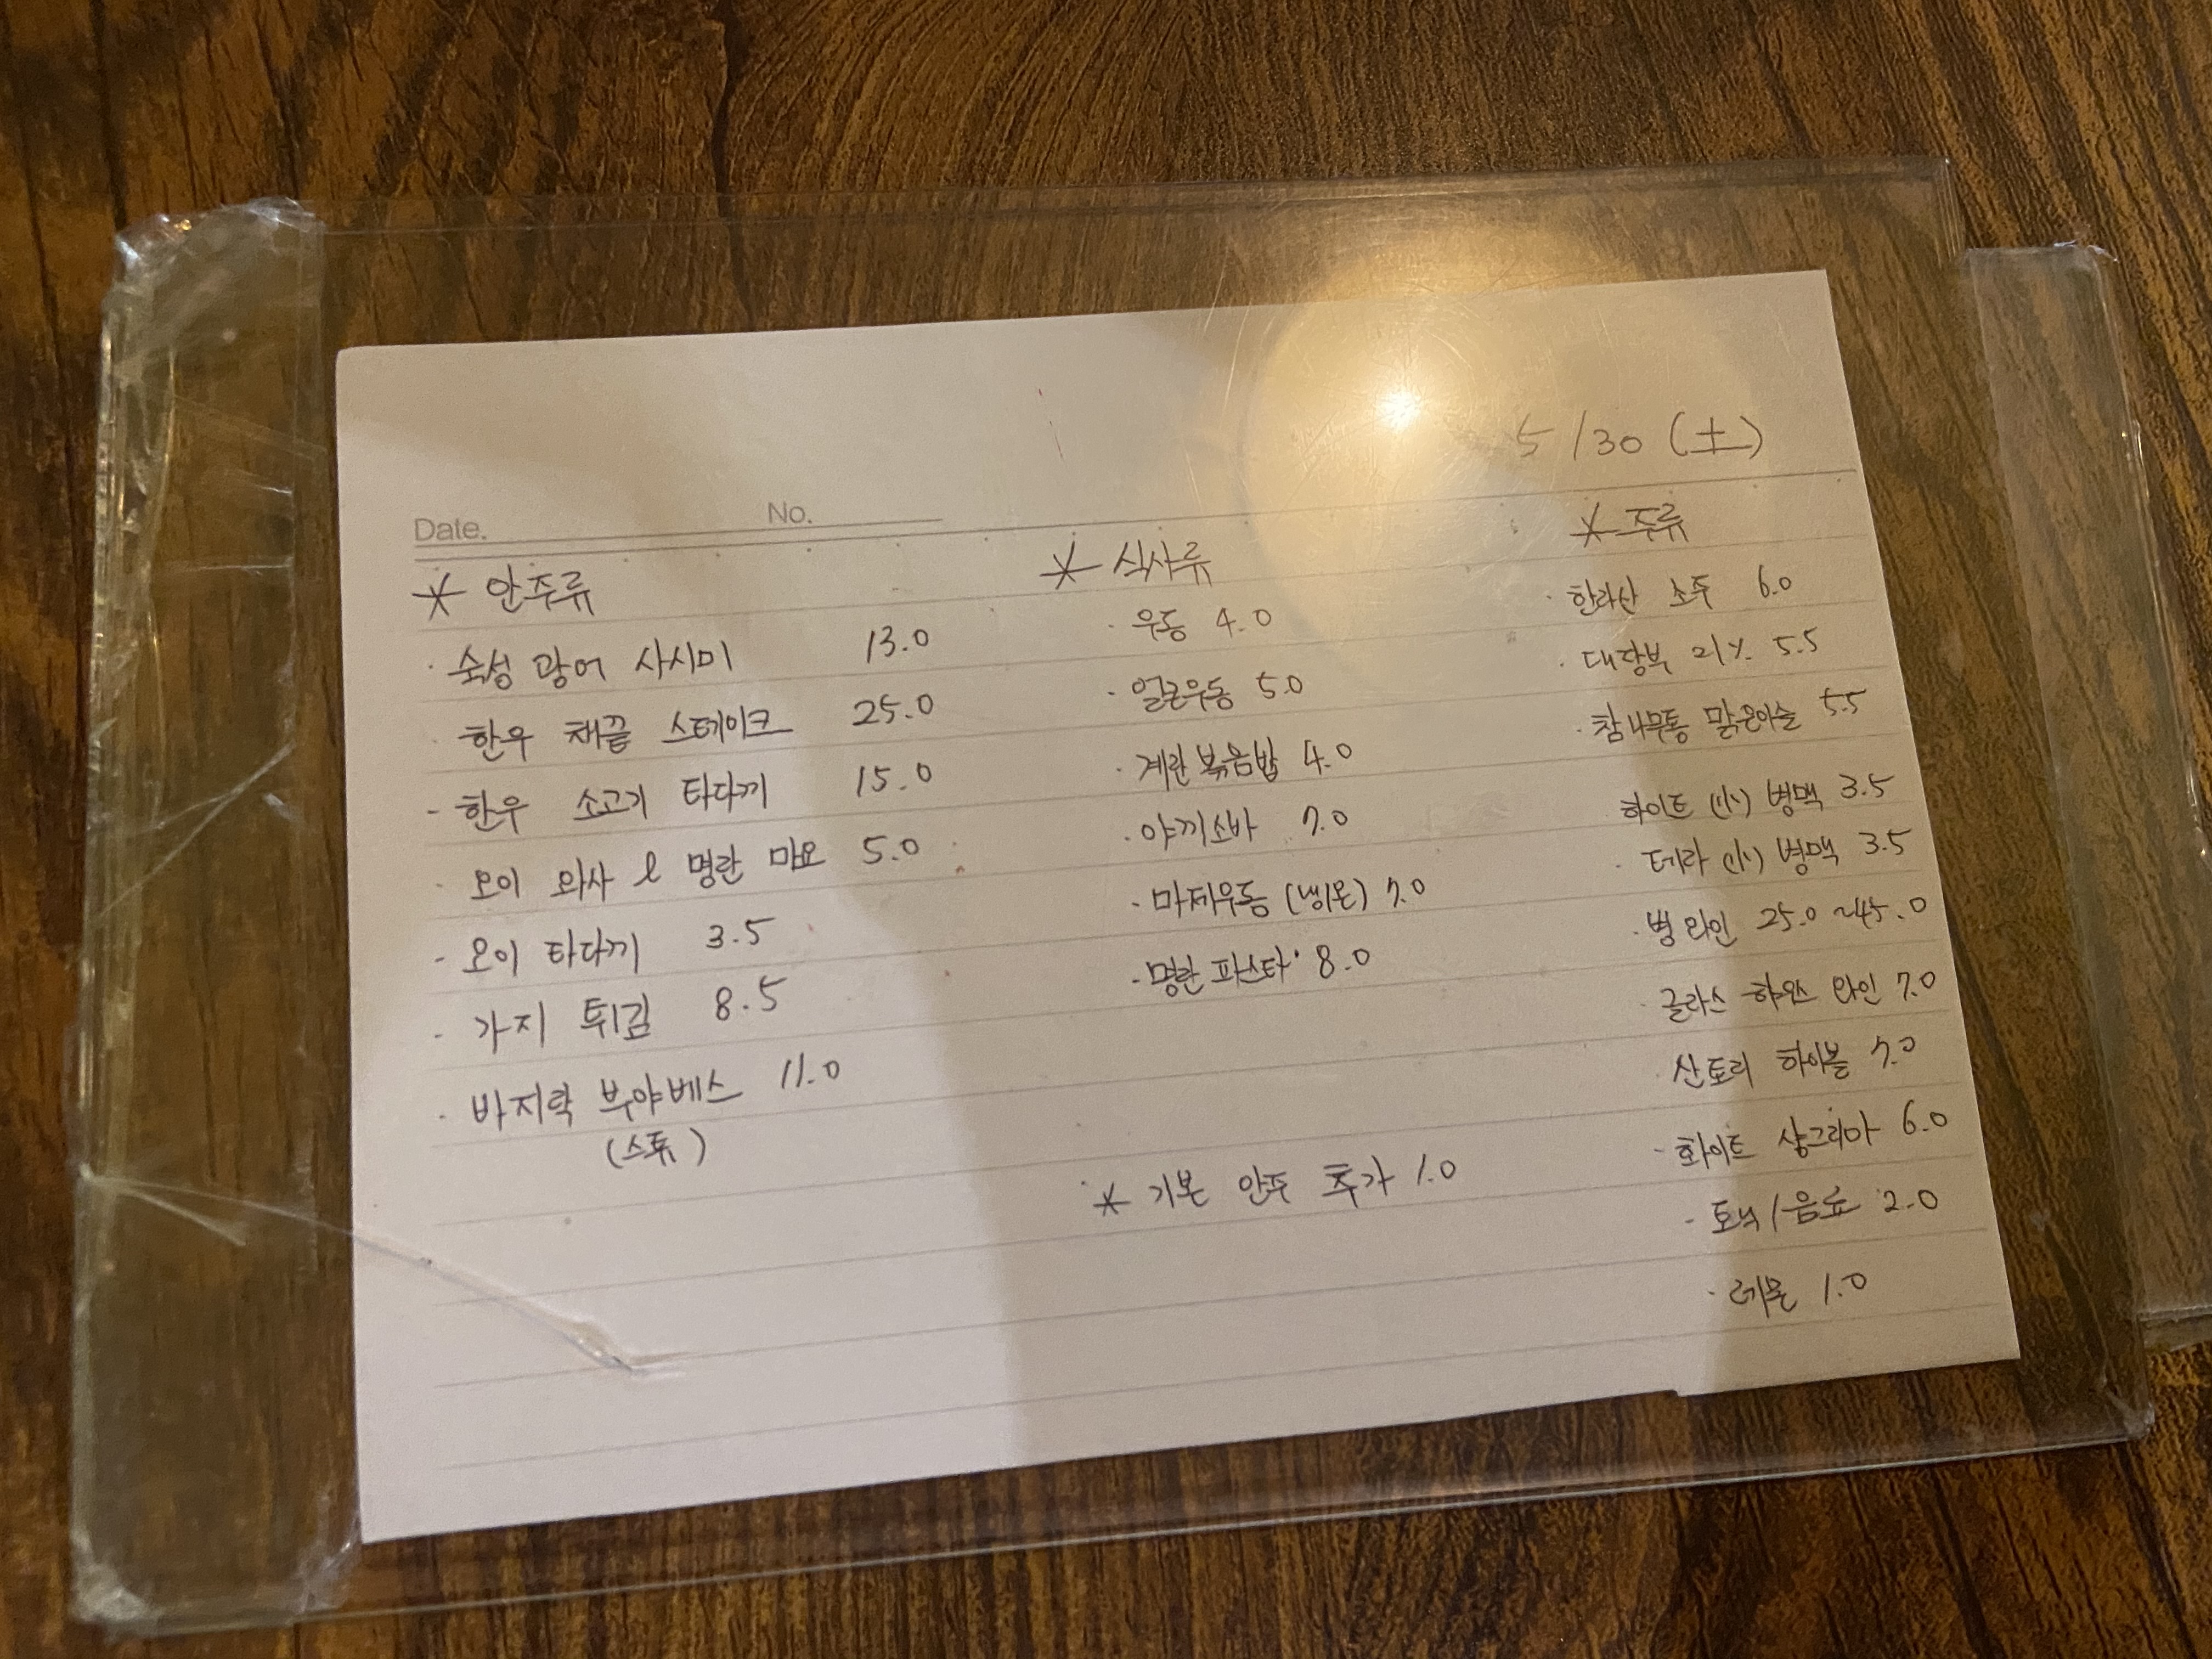 5/30 (土)
Date. No.
* 안주류
· 숙성 광어 사시미 13.0
· 한우 채끝 스테이크 25.0
- 한우 소고기 타다끼 15.0
· 오이 와사 & 명란 마요 5.0
- 오이 타다끼 3.5
- 가지 튀김 8.5
· 바지락 부야베스 11.0
(스튜)
* 식사류
· 우동 4.0
· 얼큰우동 5.0
· 계란볶음밥 4.0
· 야끼소바 7.0
· 마제우동 (냉/온) 7.0
· 명란 파스타 8.0
* 기본 안주 추가 1.0
* 주류
· 한라산 소주 6.0
· 대장부 21% 5.5
· 참나무통 맑은이슬 5.5
하이트 (小) 병맥 3.5
· 테라 (小) 병맥 3.5
· 병 와인 25.0 ~45.0
· 글라스 하우스 와인 7.0
· 산토리 하이볼 7.0
- 화이트 샹그리아 6.0
- 토닉/음료 2.0
· 레몬 1.0